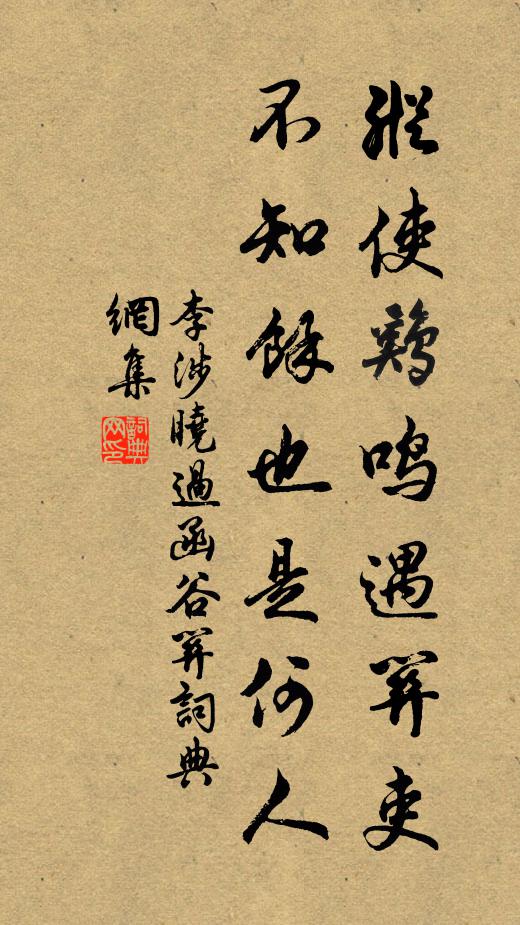 縱使鷄鳴遇關吏
不知餘也是何人
李涉曉過函谷關詞典
網集
詞典
网印